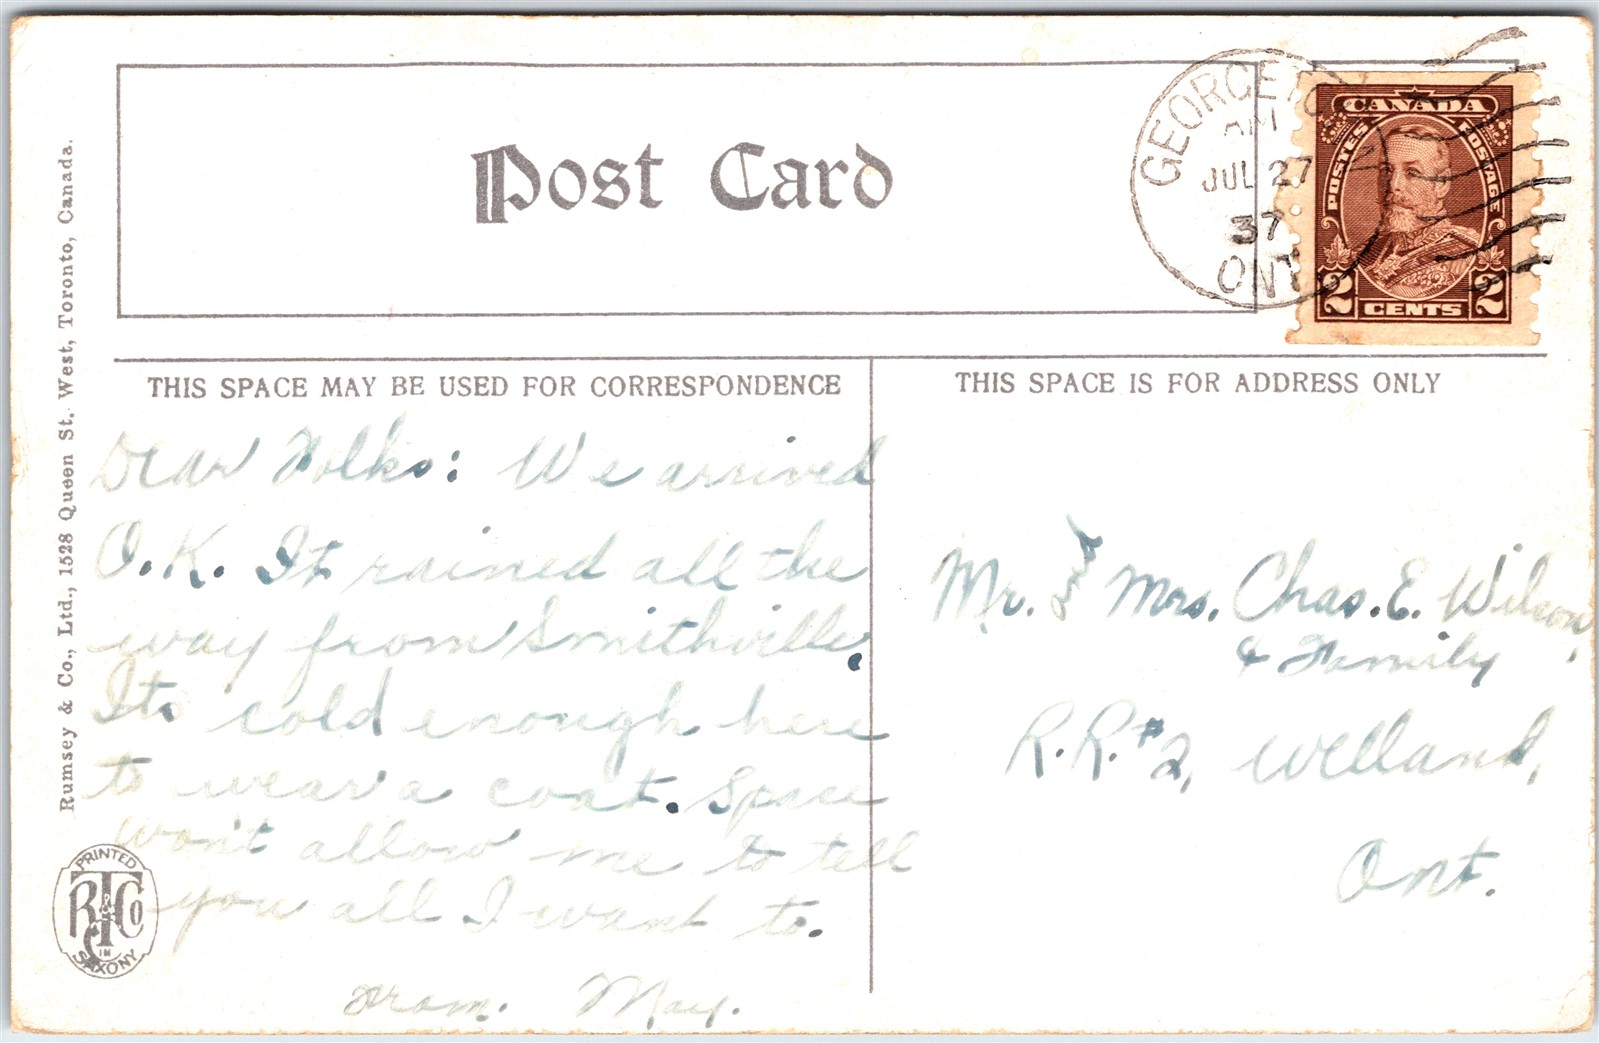 Post Card
GEORGETO
AM
JUL 27
37
ONT
CANADA
POSTES POSTAGE
2 CENTS 2
THIS SPACE MAY BE USED FOR CORRESPONDENCE
THIS SPACE IS FOR ADDRESS ONLY
Rumsey & Co., Ltd., 1528 Queen St. West, Toronto, Canada.
Dear Folks: We arrived
O.K. It rained all the
way from Smithville.
Its cold enough here
to wear a coat. Space
won't allow me to tell
you all I want to.
From. May.
Mr. and Mrs. Chas. E. Wilson,
& Family
R.R. #2, Welland,
Ont.
PRINTED
R T & Co
IN
SAXONY